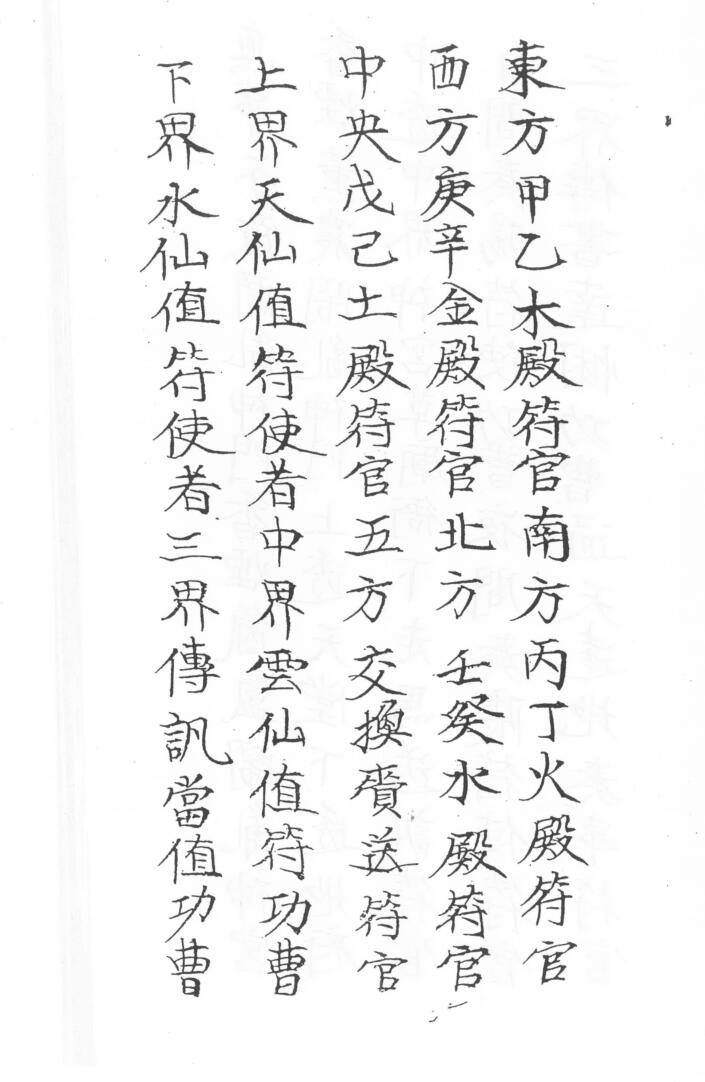 東方甲乙木殿符官南方丙丁火殿符官
西方庚辛金殿符官北方壬癸水殿符官
中央戊己土殿符官五方交換賫送符官
上界天仙值符使者中界雲仙值符功曹
下界水仙值符使者三界傳訊當值功曹